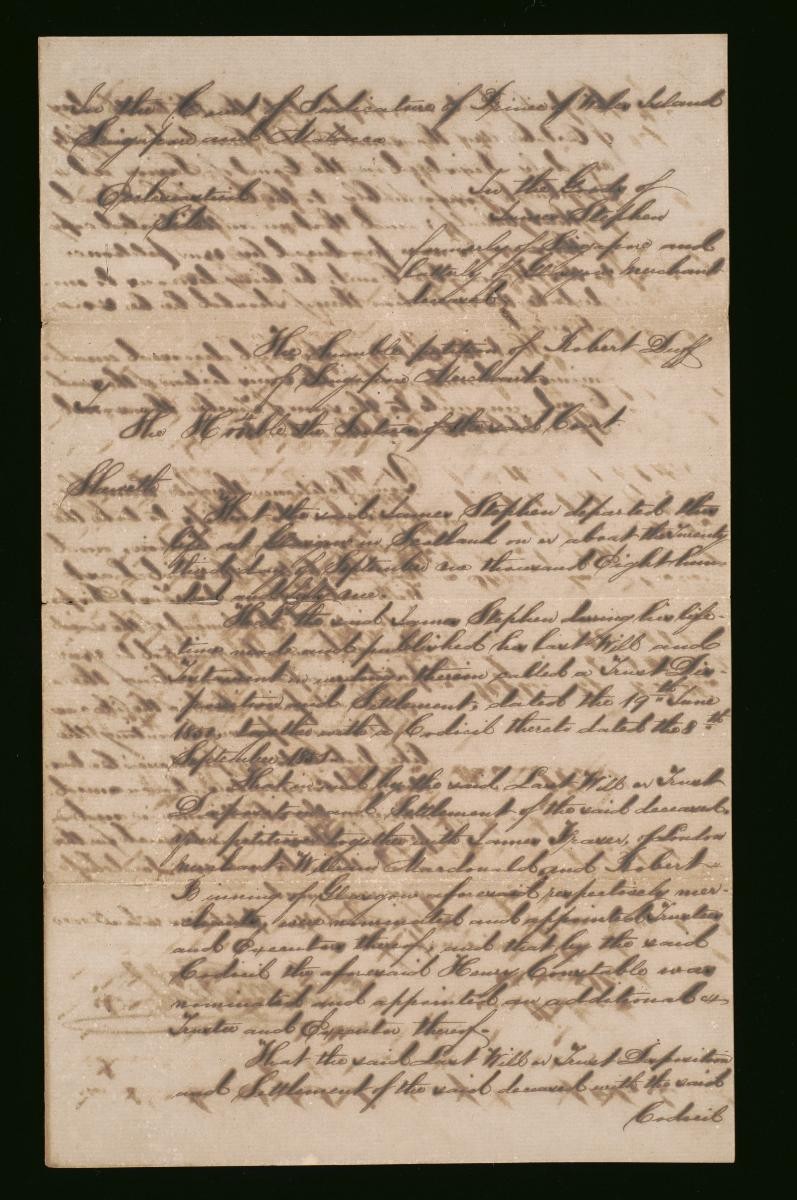 In the Court of Judicature of Prince of Wales Island
Singapore and Malacca
Ecclesiastical
Side
In the Goods of
James Stephen
formerly of Singapore and
latterly of Glasgow Merchant
deceased
The humble petition of Robert Duff
of Singapore Merchant
To
The Honble the Justices of the said Court
Sheweth
That the said James Stephen departed this
life at in Scotland on or about the Twenty
third day of September one thousand Eight hun-
dred and one.
That the said James Stephen during his life-
time made and published his last Will and
Testament in writing therein called a Trust Dis-
position and Settlement, dated the 19th June
together with a Codicil thereto dated the 8th
September
That in and by the said Last Will or Trust
Disposition and Settlement of the said deceased,
your petitioner together with James Frazer, of London
merchant, William Macdonald and Robert
Binning of Glasgow aforesaid respectively mer-
chants, were nominated and appointed Trustees
and Executors thereof, and that by the said
Codicil the aforesaid Henry Constable was
nominated and appointed an additional
Trustee and Executor thereof.
That the said Last Will or Trust Disposition
and Settlement of the said deceased with the said
Codicil